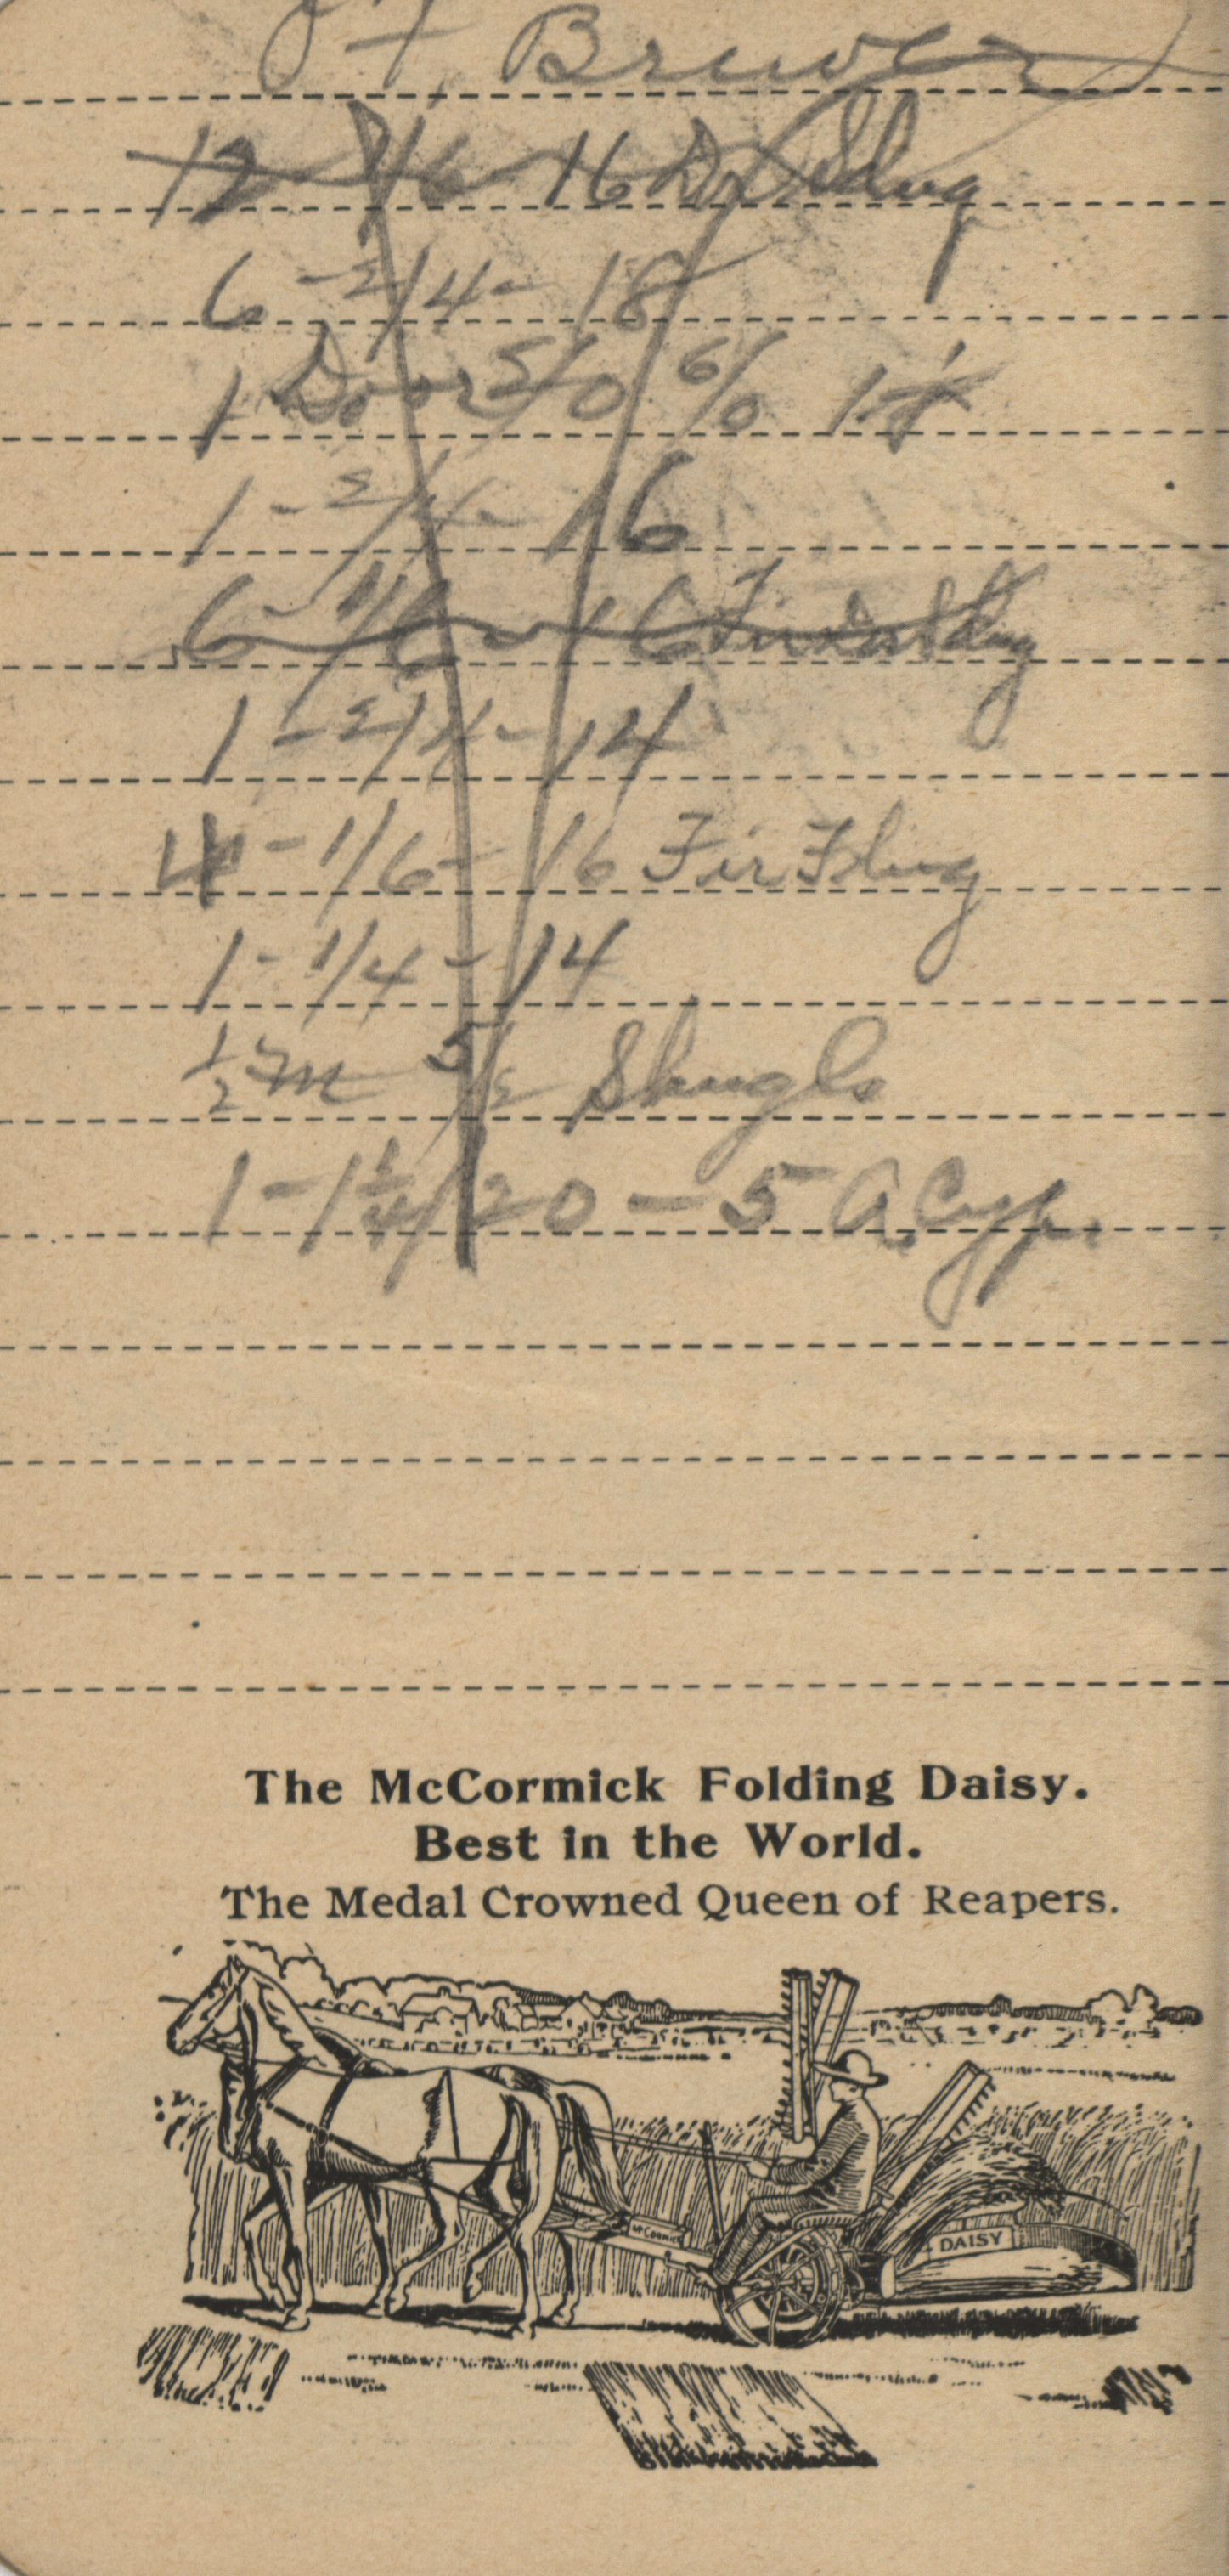 Brewer
12 - 1/6 - 16
6 - 2/4 - 18
1 Door 2/0 6/0 1
1 - 2/4 - 16
6 - 1/6 - 16
1 - 2/4 - 14
4 - 1/6 - 16 Fir Flng
1 - 1/4 - 14
½ M 5/2 Shngls
1 - 1¼/20 - 5 A. Cyp.
The McCormick Folding Daisy.
Best in the World.
The Medal Crowned Queen of Reapers.
McCormick
DAISY